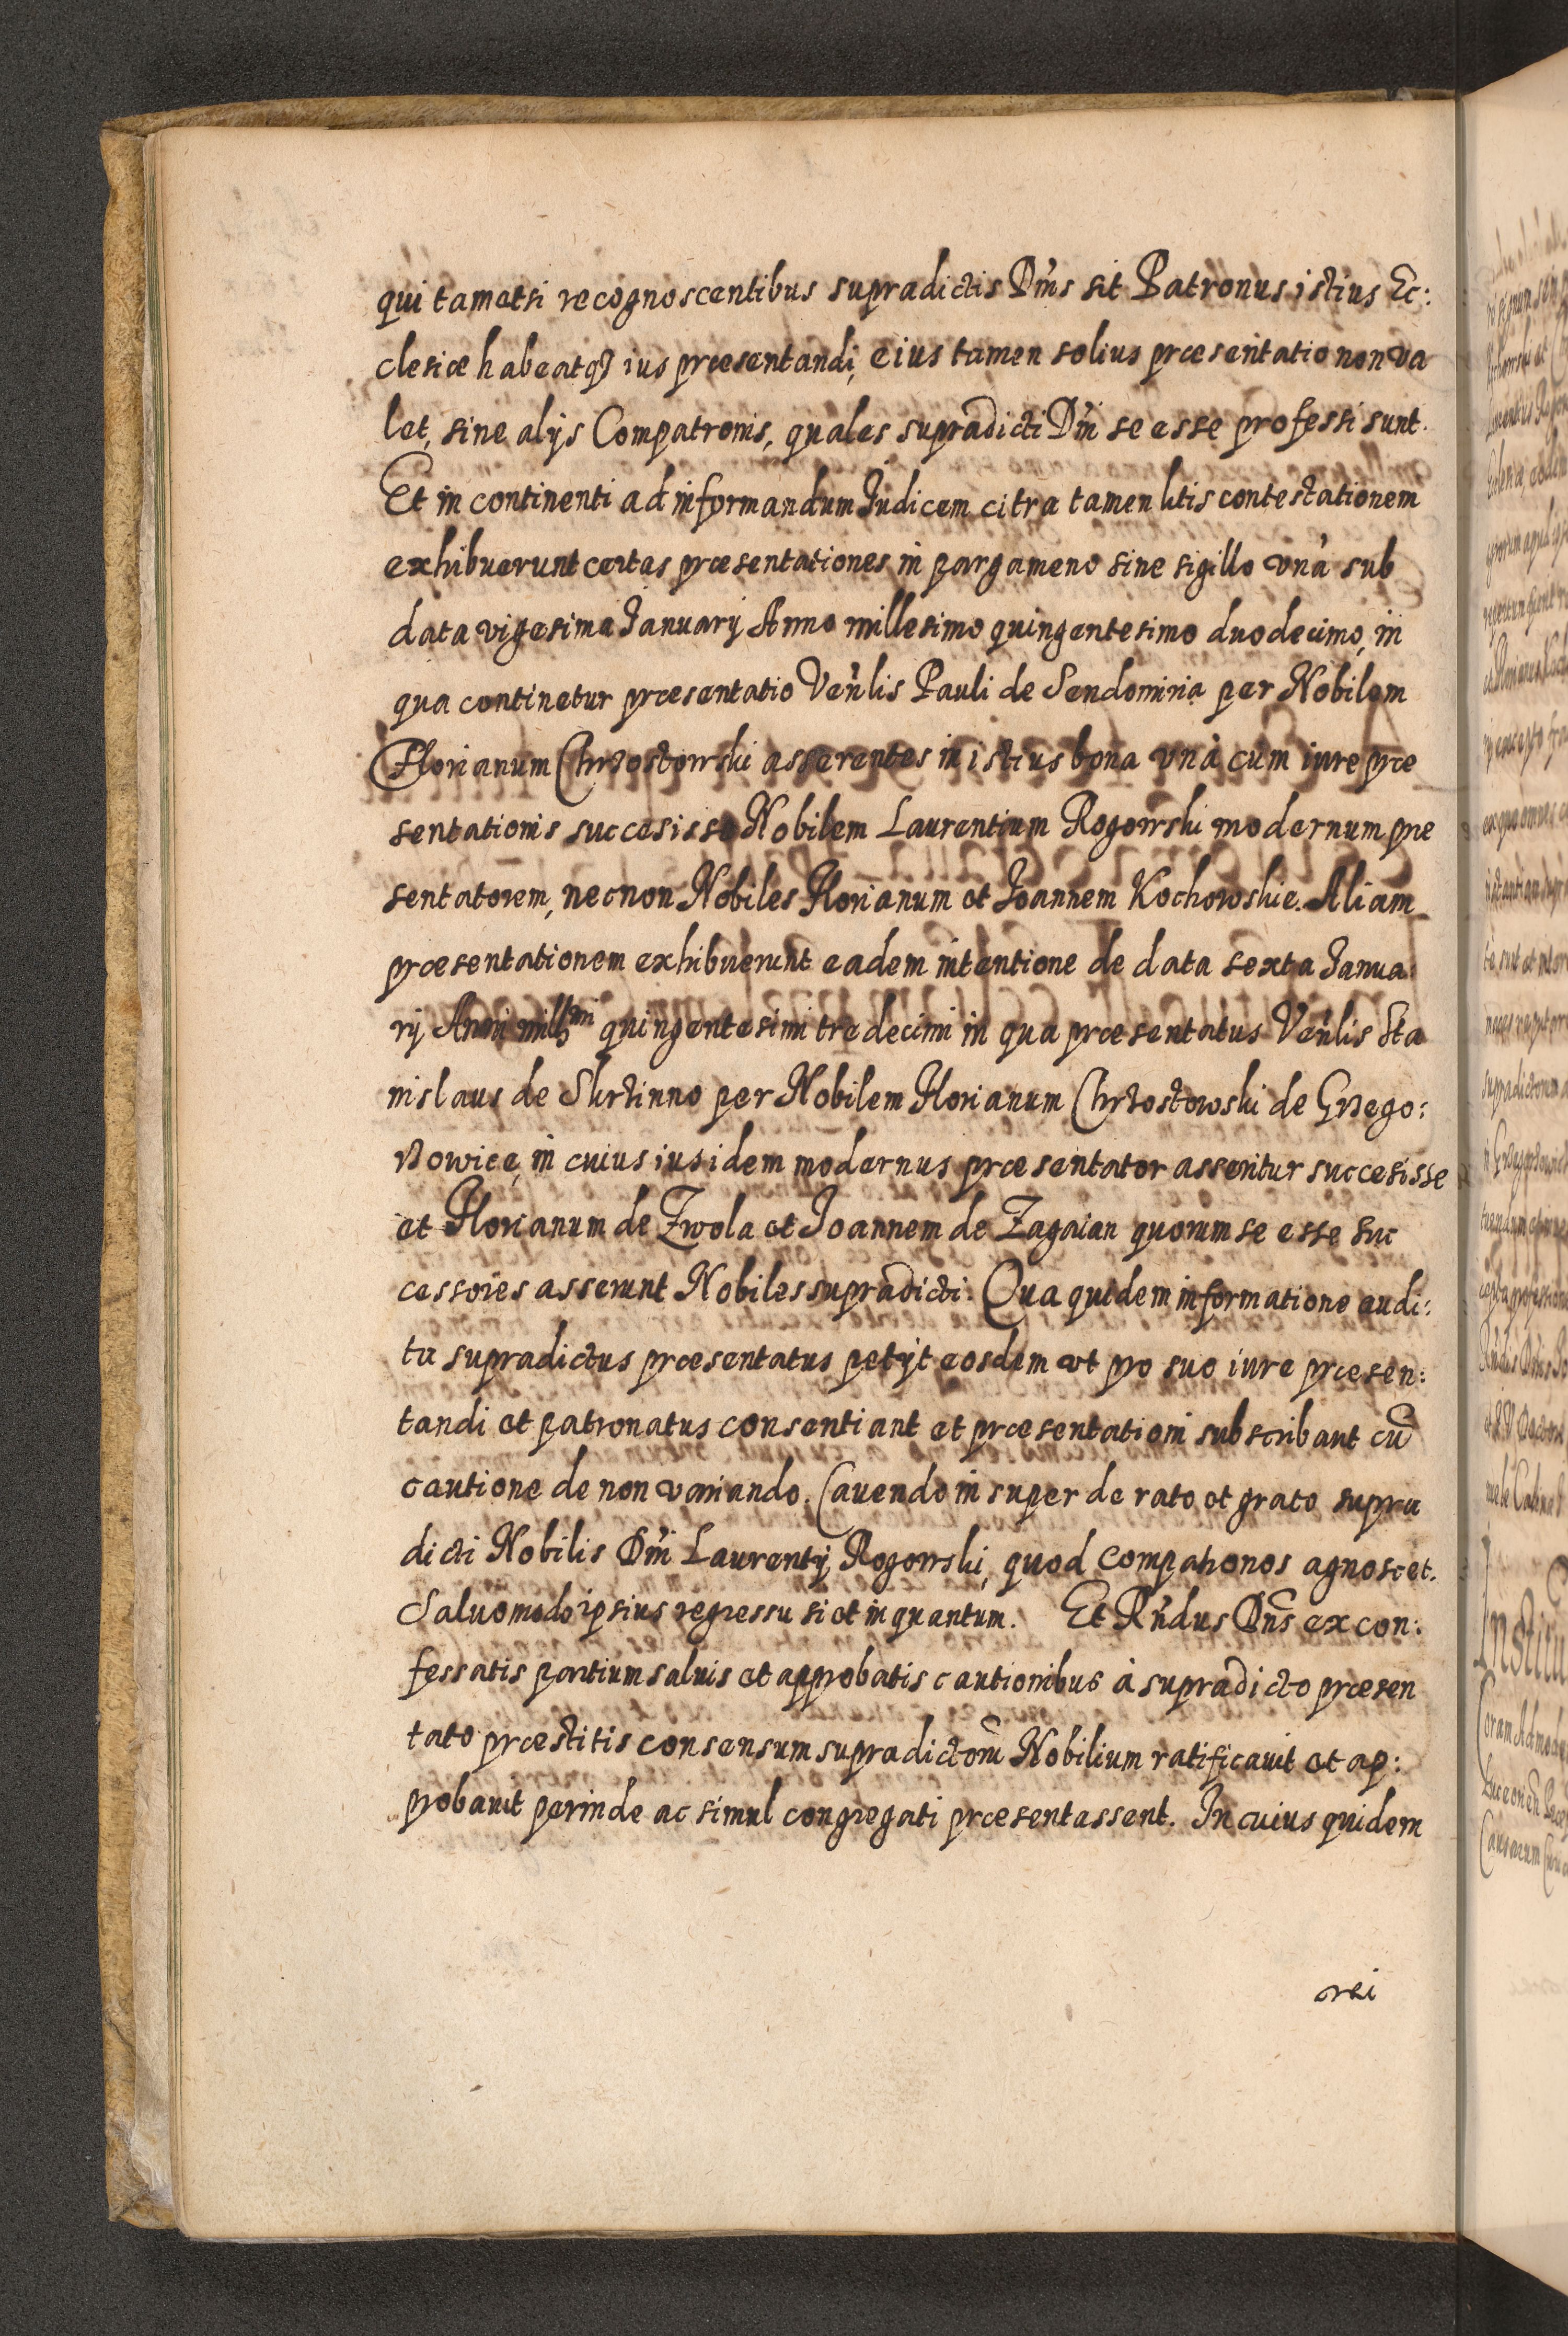 qui tametsi recognoscentibus supradictis Dńis sit Patronus istius Ec:
clesiæ habeatqȝ ius præsentandi, eius tamen solius præsentatio non va
let, sine alijs Compatronis, quales supradicti Dńi se esse professi sunt.
Et in continenti ad informandum Iudicem citra tamen litis contestationem
exhibuerunt certas præsentationes in pargameno sine sigillo vnà sub
data vigesima Ianuarij Anno millesimo quingentesimo duodecimo, in
qua continetur præsentatio Veńlis Pauli de Sendomiria per Nobilem
Florianum Chrzostowski asserentes in istius bona vnà cum iure præ
sentationis succesisse Nobilem Laurentium Rogowski modernum præ
sentatorem, necnon Nobiles Florianum et Ioannem Kochowskie. Aliam
præsentationem exhibuerunt eadem intentione de data sexta Ianua:
rij Anni millmi quingentesimi tredecimi in qua præsentatus Veńlis Sta
nislaus de Skrzinno per Nobilem Florianum Chrzostowski de Grzego:
rzowicę in cuius ius idem modernus præsentator asseritur succesisse
et Florianum de Zwola et Ioannem de Zagaian quorum se esse suc
cessores asserunt Nobiles supradicti. Qua quidem informatione audi:
ta supradictus præsentatus petijt eosdem vt pro suo iure præsen:
tandi et patronatus consentiant et præsentationi subscribant cū
cautione de non variando. Cauendo in super de rato et grato supra
dicti Nobilis Dńi Laurentij Rogowski, quod compatronos agnoscet.
Saluo modo ipsius regressu si et in quantum. Et Rńdus Dńs ex con:
fessatis partium saluis et approbatis cautionibus à supradicto præsen
tato præstitis consensum supradictorū Nobilium ratificauit et ap:
probauit perinde ac simul congregati præsentassent. In cuius quidem
rei